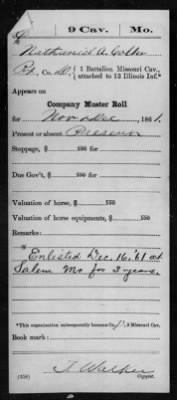 9 Cav. Mo.
Nathaniel A. Colter
Pvt, Co. D, 1 Battalion Missouri Cav., attached to 13 Illinois Inf.*
Appears on
Company Muster Roll
for Nov & Dec, 1861.
Present or absent Present
Stoppage, $ 100
Due Gov't, $ 100
Valuation of horse, $ 100
Valuation of horse equipments, $ 100
Remarks:
Enlisted Dec. 16, '61 at
Salem Mo for 3 years.
*This organization subsequently became Co. 9 Missouri Cav.
Book mark:
T. Walker
(358) Copyist.